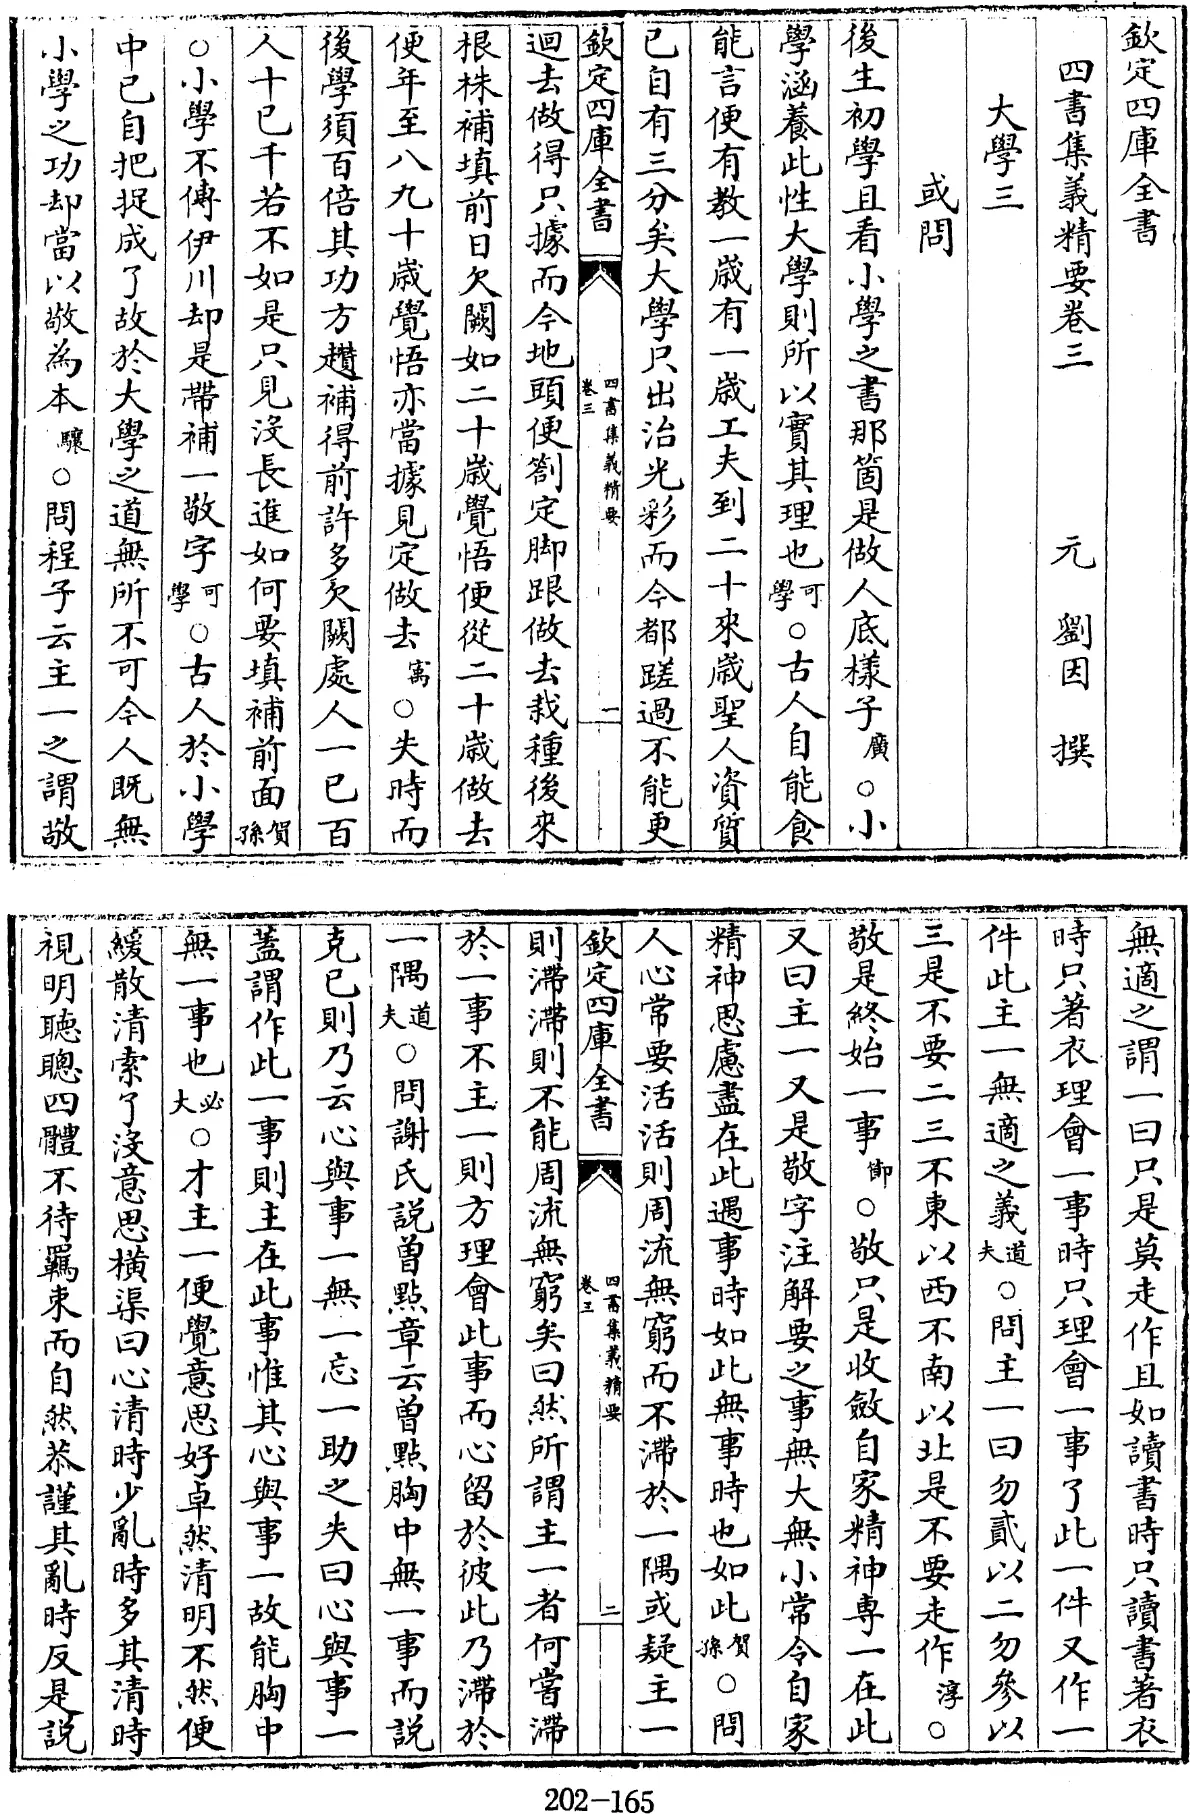 欽定四庫全書
四書集義精要卷三
元 劉因 撰
大學三
或問
後生初學且看小學之書那箇是做人底樣子廣○小
學涵養此性大學則所以實其理也可學○古人自能食
能言便有教一歲有一歲工夫到二十來歲聖人資質
已自有三分矣大學只出治光彩而今都蹉過不能更
欽定四庫全書
四書集義精要
卷三
一
迴去做得只據而今地頭便劄定脚跟做去栽種後來
根株補填前日欠闕如二十歲覺悟便從二十歲做去
便年至八九十歲覺悟亦當據見定做去㝢○失時而
後學須百倍其功方趲補得前許多欠闕處人一已百
人十已千若不如是只見沒長進如何要填補前面賀孫
○小學不傳伊川却是帶補一敬字可學○古人於小學
中已自把捉成了故於大學之道無所不可今人既無
小學之功却當以敬為本驤○問程子云主一之謂敬
無適之謂一曰只是莫走作且如讀書時只讀書著衣
時只著衣理會一事時只理會一事了此一件又作一
件此主一無適之義道夫○問主一曰勿貳以二勿參以
三是不要二三不東以西不南以北是不要走作淳○
敬是終始一事節○敬只是收斂自家精神專一在此
又曰主一又是敬字注解要之事無大無小常令自家
精神思慮盡在此遇事時如此無事時也如此賀孫○問
人心常要活活則周流無窮而不滯於一隅或疑主一
欽定四庫全書
四書集義精要
卷三
二
則滯滯則不能周流無窮矣曰然所謂主一者何嘗滯
於一事不主一則方理會此事而心留於彼此乃滯於
一隅道夫○問謝氏説曾㸃章云曾㸃胸中無一事而説
克已則乃云心與事一無一忘一助之失曰心與事一
蓋謂作此一事則主在此事惟其心與事一故能胸中
無一事也必大○才主一便覺意思好卓然清明不然便
緩散清索了沒意思橫渠曰心清時少亂時多其清時
視明聽聰四體不待羈束而自然恭謹其亂時反是説
202-165